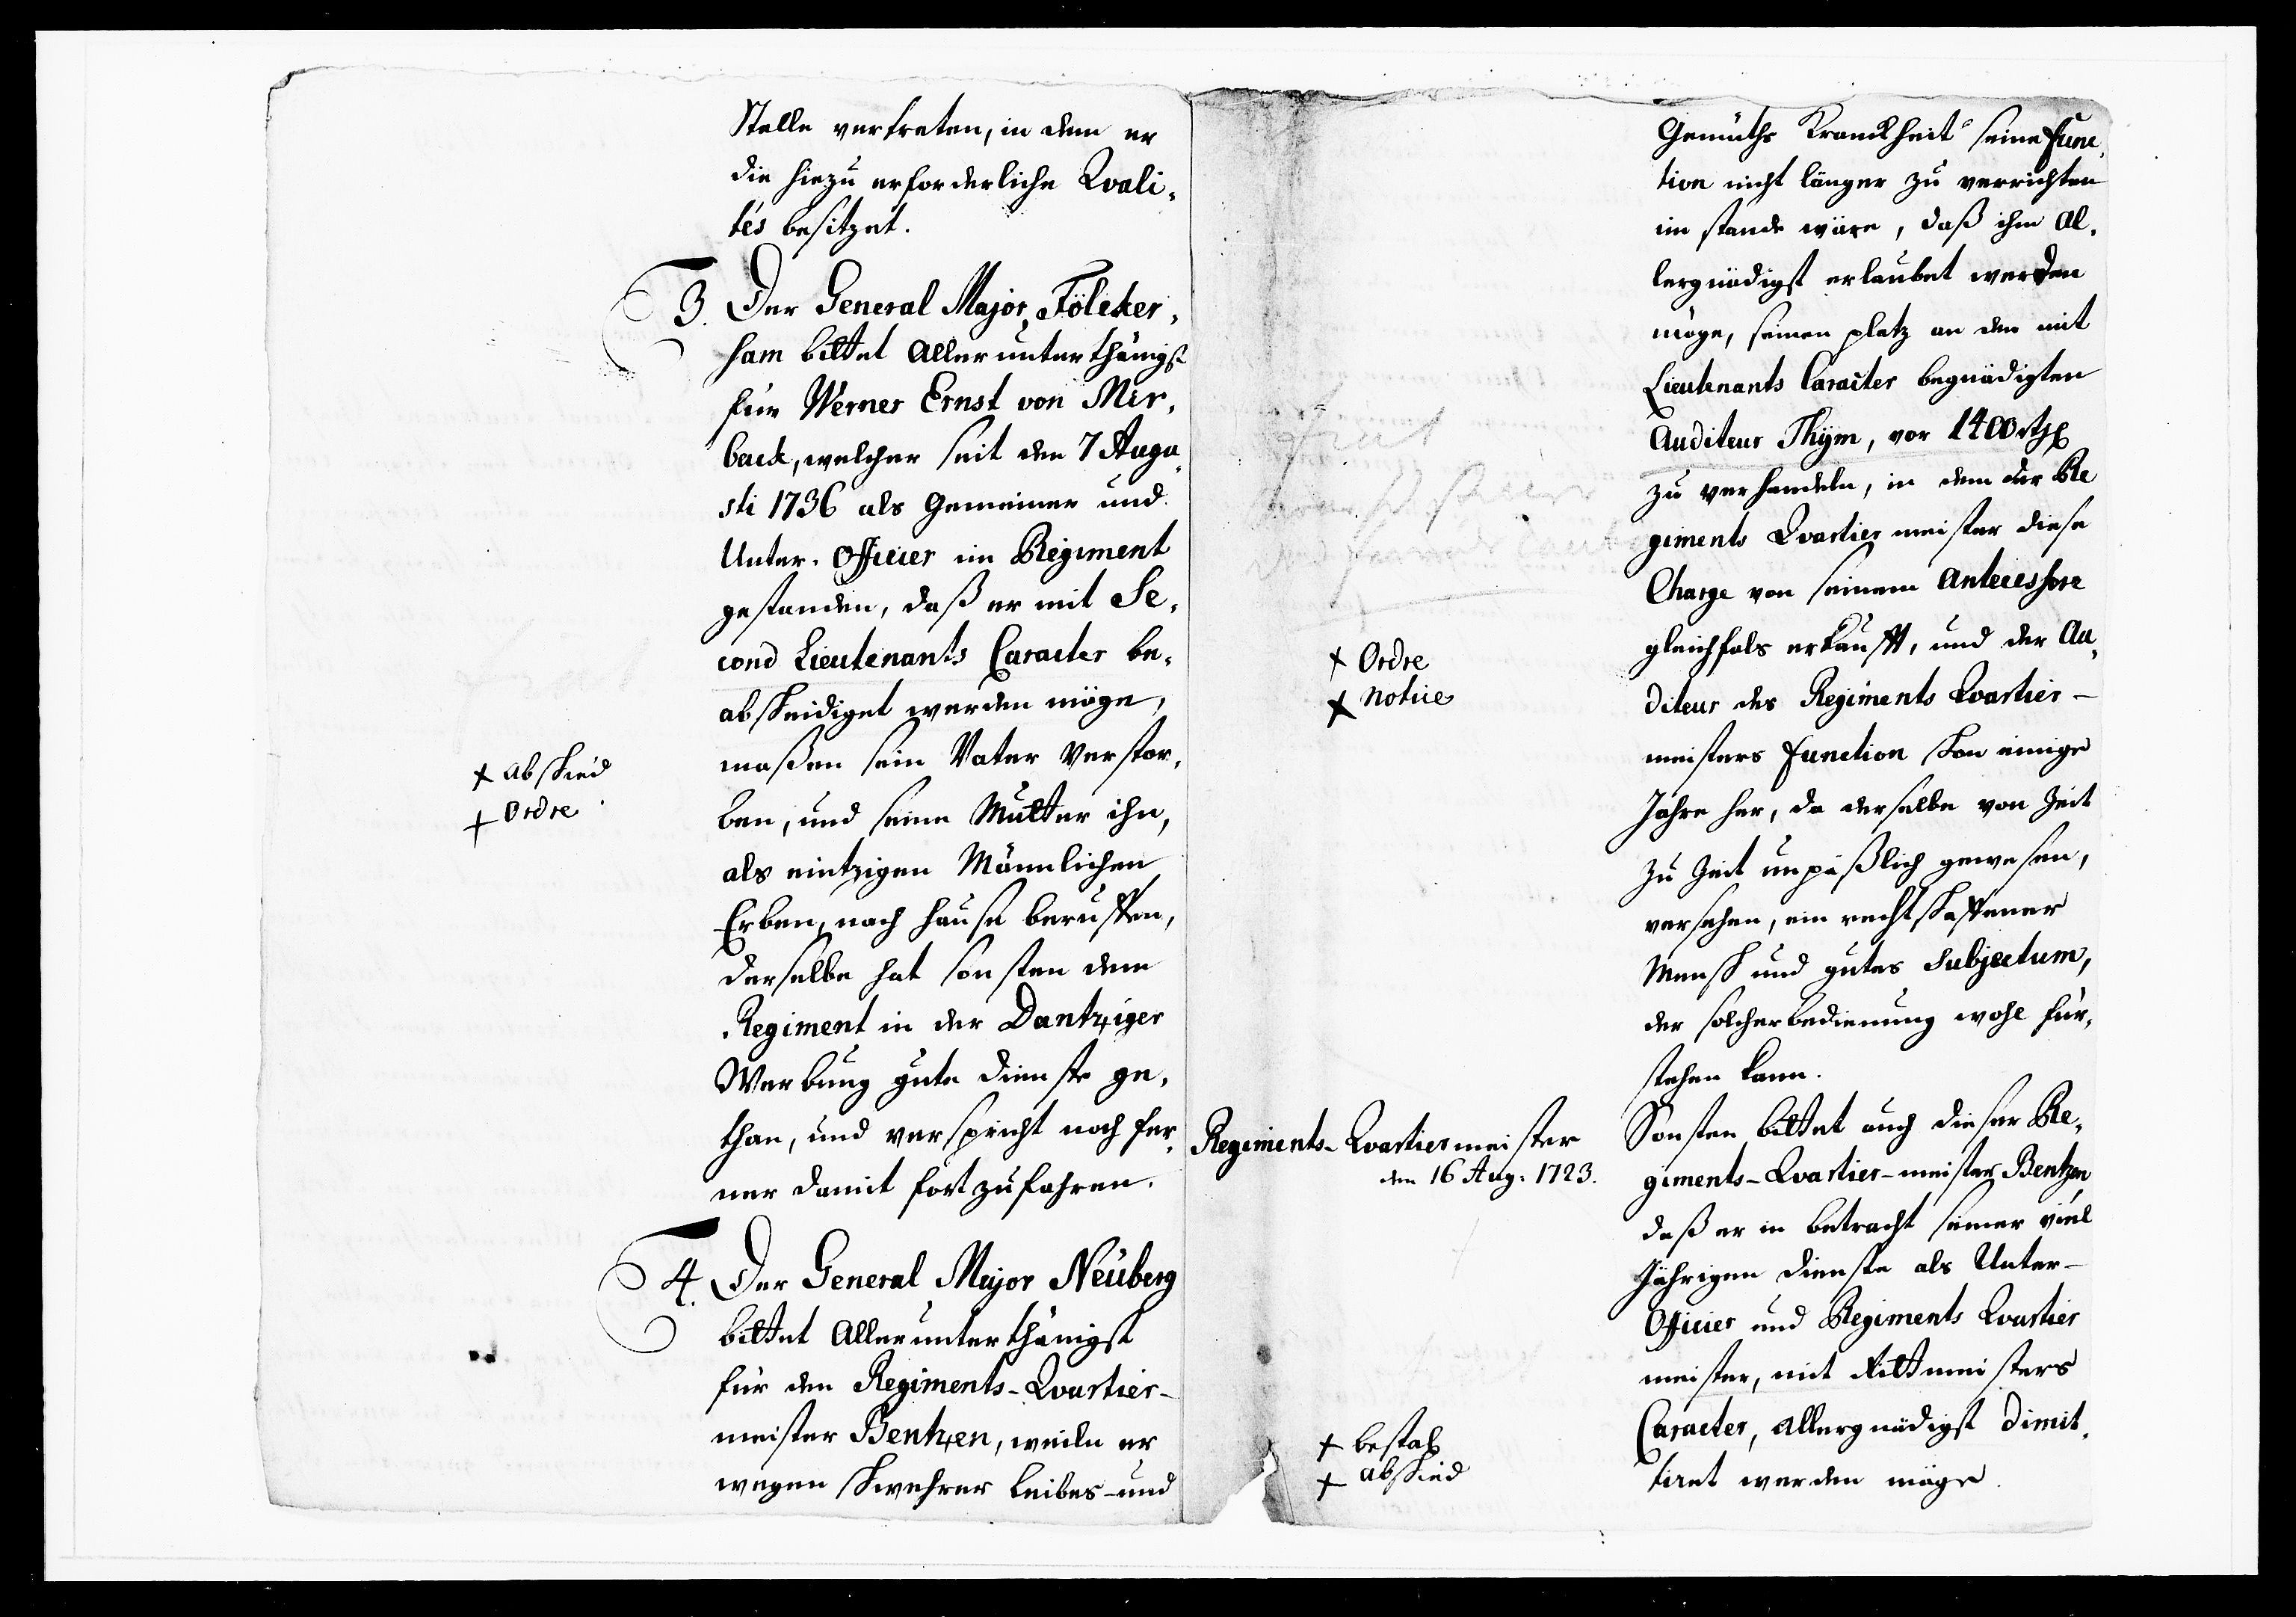 Stelle vertreten, in dem er
die hiezu erforderliche Qvali-
tés besitzet.
3. Der General Major Fölcker-
sam bittet Allerunterthänigst
für Werner Ernst von Mir-
back, welcher seit den 7 Augu-
sti 1736 als Gemeiner und
Unter-Officier im Regiment
gestanden, daß er mit Se-
cond Lieutenants Caracter be-
abscheidiget werden möge,
maßen sein Vater verstor-
ben, und seine Mutter ihn,
als eintzigen Männlichen
Erben, nach hause beruffen,
derselbe hat sonsten dem
Regiment in der Dantziger
Werbung gute dienste ge-
than, und verspricht noch fer-
ner damit fortzufahren.
+ Abschied
+ Ordre
4. Der General Major Neüberg
bittet Allerunterthänigst
für den Regiments-Qvartier-
meister Bentzen, weiln er
wegen schwehrer Leibes- und
Gemüths Kranckheit seine func-
tion nicht länger zu verrichten
im stande wäre, daß ihm Al-
lergnädigst erlaubet werden
möge, seinen platz an den mit
Lieutenants Caracter begnädigten
Auditeur Thÿm, vor 1400 rthl
zu verhandeln, in dem der Re
giments Qvartiermeister diese
Charge von seinem Antecessore
gleichfals erkaufft, und der Au-
diteur des Regiments Qvartier-
meisters function schon einige
Jahre her, da derselbe von Zeit
zu Zeit unpäßlich gewesen,
versehen, ein rechtschaffener
Mensch und gutes Subjectum,
der solcher bedienung wohl für-
stehen kann.
+ Ordre
+ Notice
Regiments-Qvartiermeister
den 16 Aug: 1723.
Sonsten bittet auch dieser Re-
giments-Qvartier-meister Bentzen
daß er in betracht seiner viel
Jährigen dienste als Unter-
Officier und Regiments Qvartier
meister, mit Rittmeisters
Caracter, Allergnädigst dimit-
tiret werden möge.
+ bestal
+ Abschied